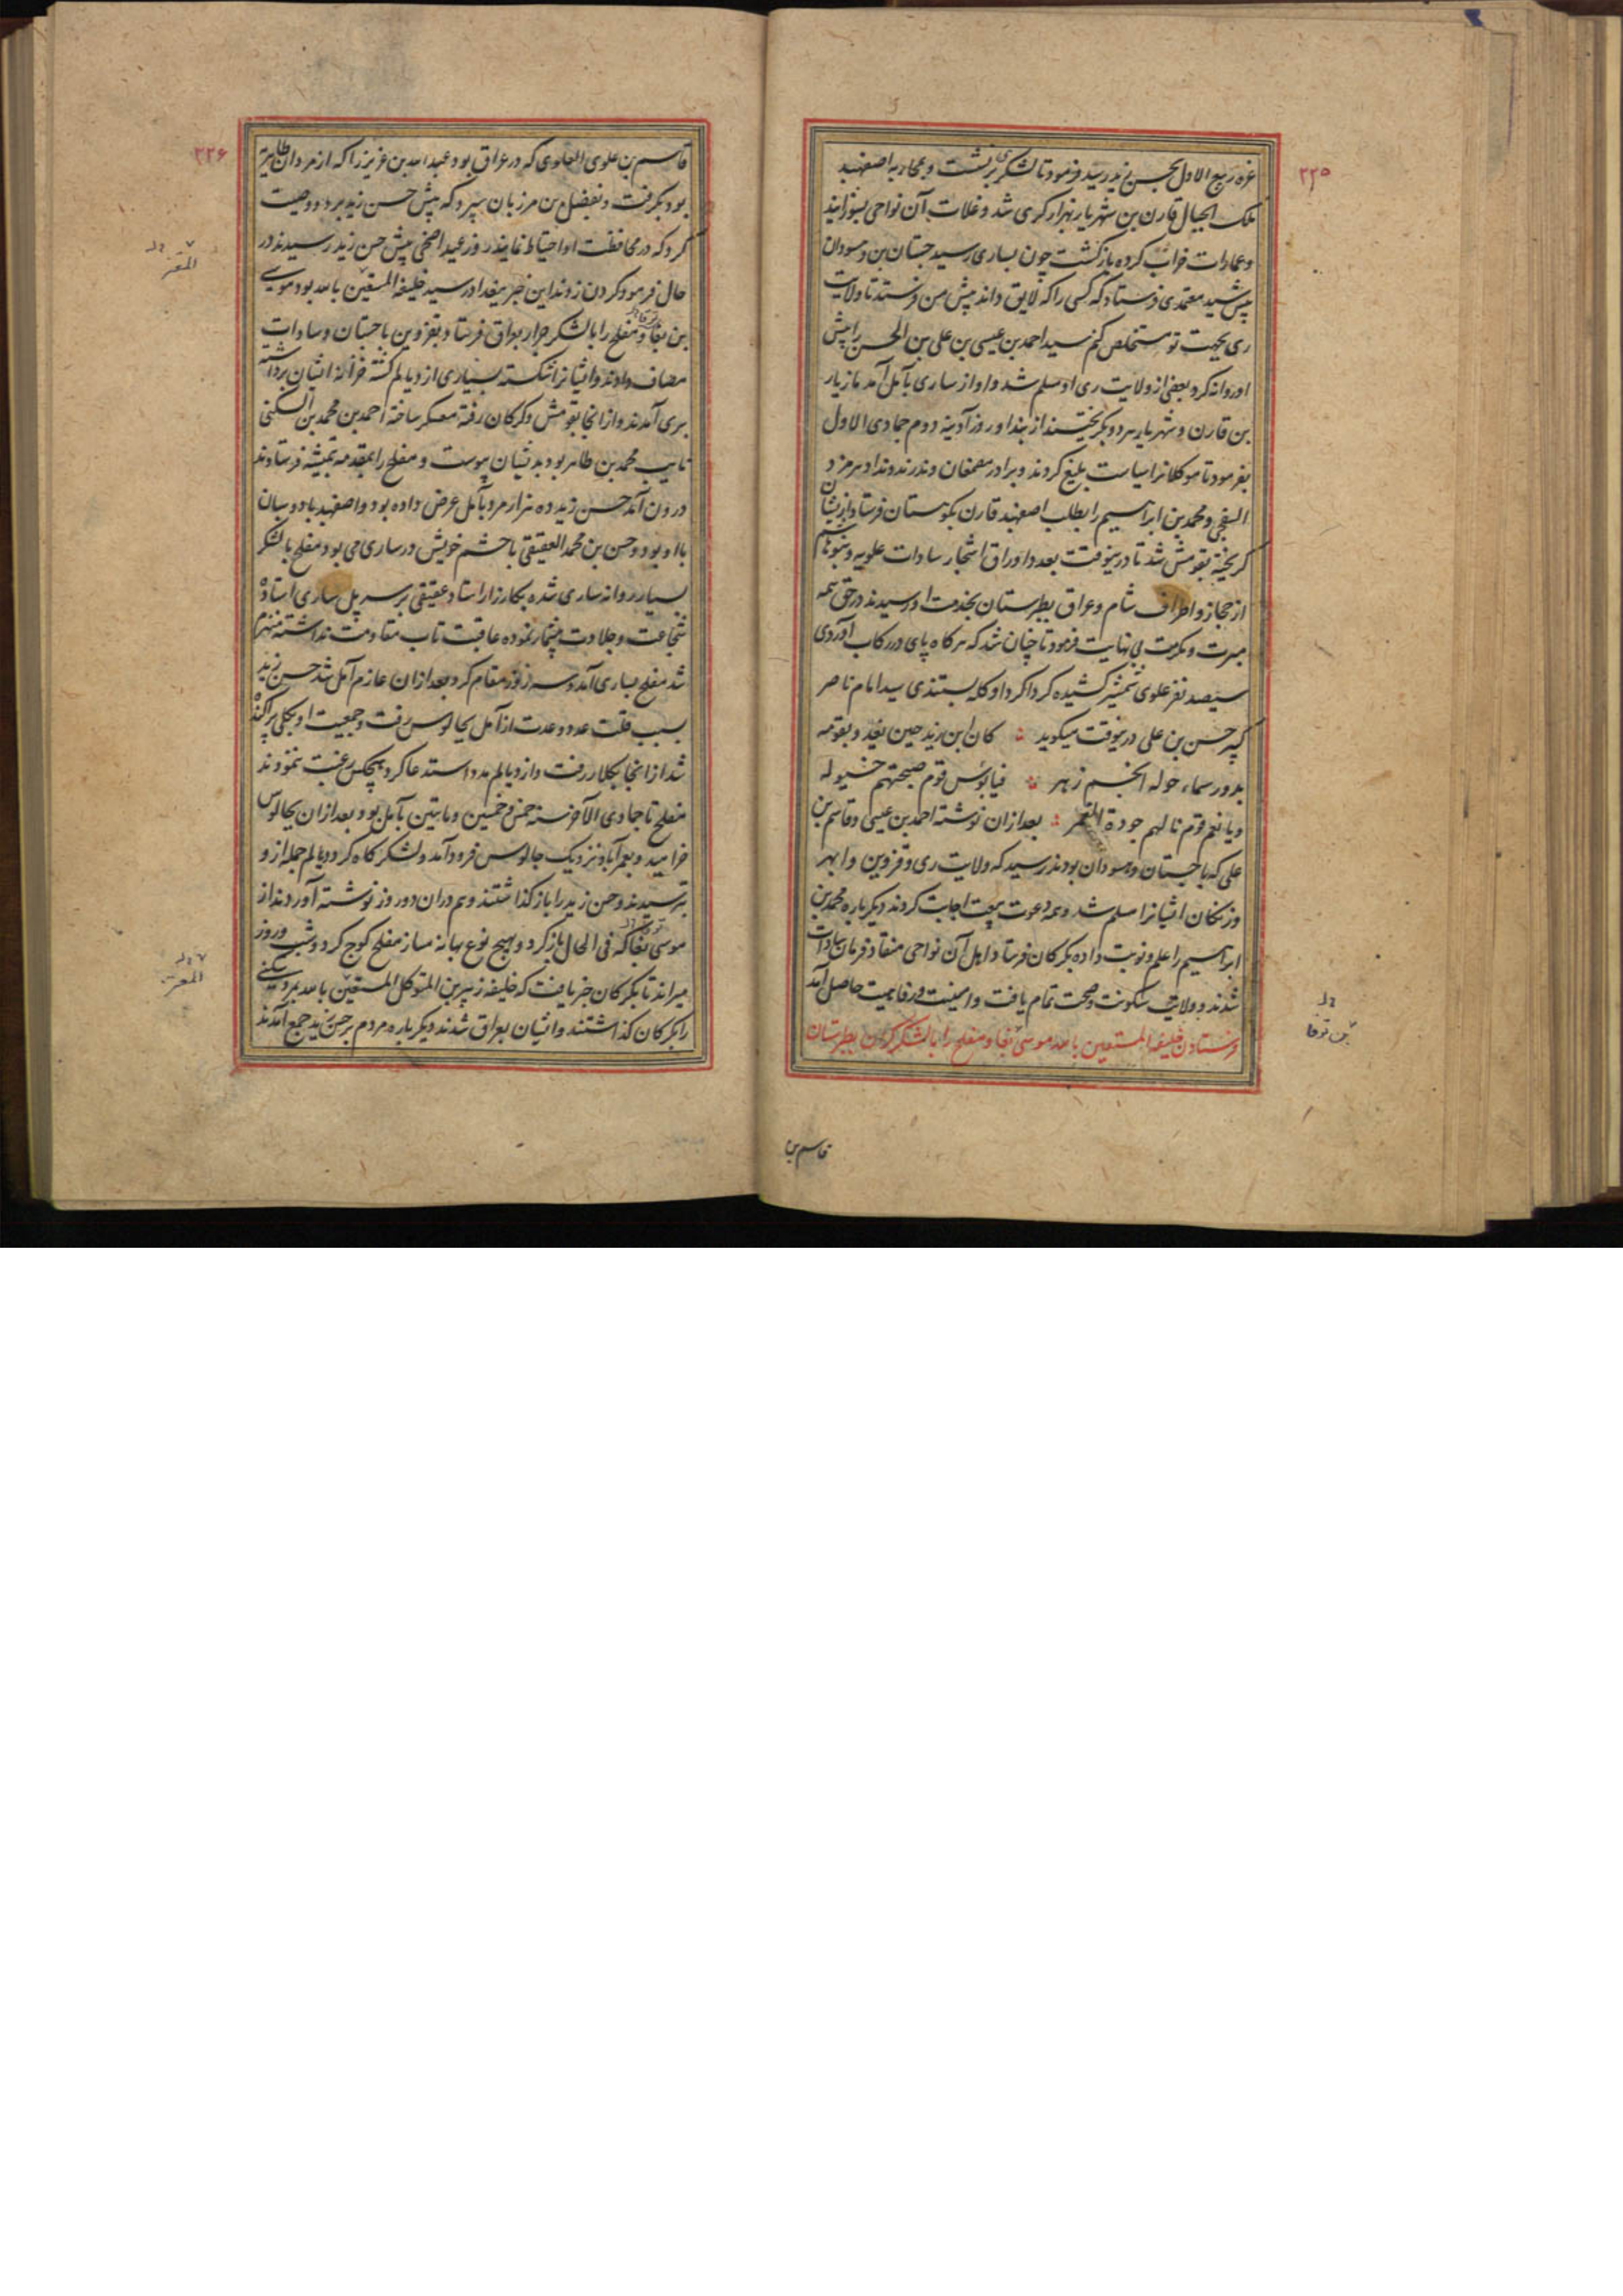 ۲۲۵
غره ربیع الاول بحسن زید رسید فرمود تا لشکر برنشست و بمحاربه اصفهبد
ملک الجبال قارن بن شهریار بهزارکری شد و غلات آن نواحی بسوزانید
و عمارات خراب کرده بازگشت چون بساری رسید جستان بن وهسودان
پیش سید معتمدی فرستاد که کسی را که لایق داند پیش من فرستد تا ولایت
ری بجهت تو مستخلص کنم سید احمد بن عیسی بن علی بن الحسن را پیش
او روانه کرد بعضی از ولایت ری او را مسلم شد و او از ساری بآمل آمد مازیار
بن قارن و شهریار هر دو بگریختند از بند او روز آدینه دوم جمادی الاول
بفرمود تا موکلانرا سیاست بلیغ کردند و برادر مصمغان وندرند و نداد هرمزد
و محمد بن ابراهیم را بطلب اصفهبد قارن بکوهستان فرستاد از ایشان
گریخته بقومش شد تا درینوقت بعدد اوراق اشجار سادات علویه و بنو هاشم
از حجاز و اطراف شام و عراق بطبرستان بخدمت او رسیدند در حق همه
مبرت و مکرمت بی نهایت فرمود تا چنان شد که هرکاه پای در رکاب آوردی
سیصد نفر علوی شمشیر کشیده کرداکرد او کله بستندی سید امام ناصر
کبیر حسن بن علی درینوقت میکوید کان ابن زید حین یغدو بقومه
بدور سماء حوله انجم زهر فیا بؤس قوم صبحتهم خیوله
و یا نعم قوم نالهم جوده الغمر بعد ازان نوشته احمد بن عیسی و قاسم بن
علی که با جستان وهسودان بودند رسید که ولایت ری و قزوین و ابهر
و زنکان ایشانرا مسلم شد و همه دعوت بیعت اجابت کردند دیکر باره محمد بن
ابراهیم را علم و نوبت داده بکرکان فرستاد اهل آن نواحی منقاد فرمان سادات
شدند و ولایت سکونت و صحت تمام یافت و امنیت و رفاهیت حاصل آمد
فرستادن خلیفه المستعین بالله موسی بغا و مفلح را با لشکر کران بطبرستان
بن توقا
قاسم بن
۲۲۶
قاسم بن علوی العلوی که در عراق بود عبد الله بن عزیز را که از مردان طاهریه
بود بکرفت و بفضل بن مرزبان سپرد که پیش حسن زید برد و وصیت
کرد که در محافظت او احتیاط نمایند روز عید اضحی پیش حسن زید رسیدند در
حال فرمود کردن زدند این خبر ببغداد رسید خلیفه المستعین بالله بود موسی
بن بغا و مفلح را با لشکر جرار بعراق فرستاد بقزوین با جستان و سادات
مصاف دادند و ایشانرا شکسته بسیاری از دیالم کشته خزانه ایشان برداشته
بری آمدند و از انجا بقومش و کرکان رفته معسکر ساخته احمد بن محمد بن السکنی
نایب محمد بن طاهر بود بدیشان پیوست و مفلح را بمقدمه بتمیشه فرستادند
درون آمد حسن زید ده هزار مرد بآمل عرض داده بود و اصفهبد بادوسبان
با او بود و حسن بن محمد العقیقی با حشم خویش در ساری می بود مفلح با لشکر
بسیار روانه ساری شده بکارزار استاد عقیقی بر سر پل ساری استاده
شجاعت و جلادت بیشمار نموده عاقبت تاب مقاومت نداشته منهزم
شد مفلح بساری آمد و سه روز مقام کرد بعد ازان عازم آمل شد حسن زید
بسبب قلت عدد و عدت از آمل بچالوس رفت و جمعیت او بکلی پراکنده
شد از انجا بکلار رفت و از دیالم مدد استدعا کرد هیچکس رغبت ننمودند
مفلح تا جمادی الآخر سنه خمس و خمسین و مایتین بآمل بود و بعد ازان بچالوس
خرامید و بعمرآباد نزدیک چالوس فرود آمد و لشکرکاه کرد دیالم جمله از و
بترسیدند و حسن زید را باز کذاشتند و هم دران دو روز نوشته آوردند از
موسی بغا که فی الحال باز کرد و بهیچ نوع بهانه مساز مفلح کوچ کرد و شب و روز
میراند تا بکرکان خبر یافت که خلیفه زبیر بن المتوکل المستعین بالله بمرد سکنی
را بکرکان کذاشتند و ایشان بعراق شدند دیکر باره مردم بر حسن زید جمع آمدند
المعتز
المعتز